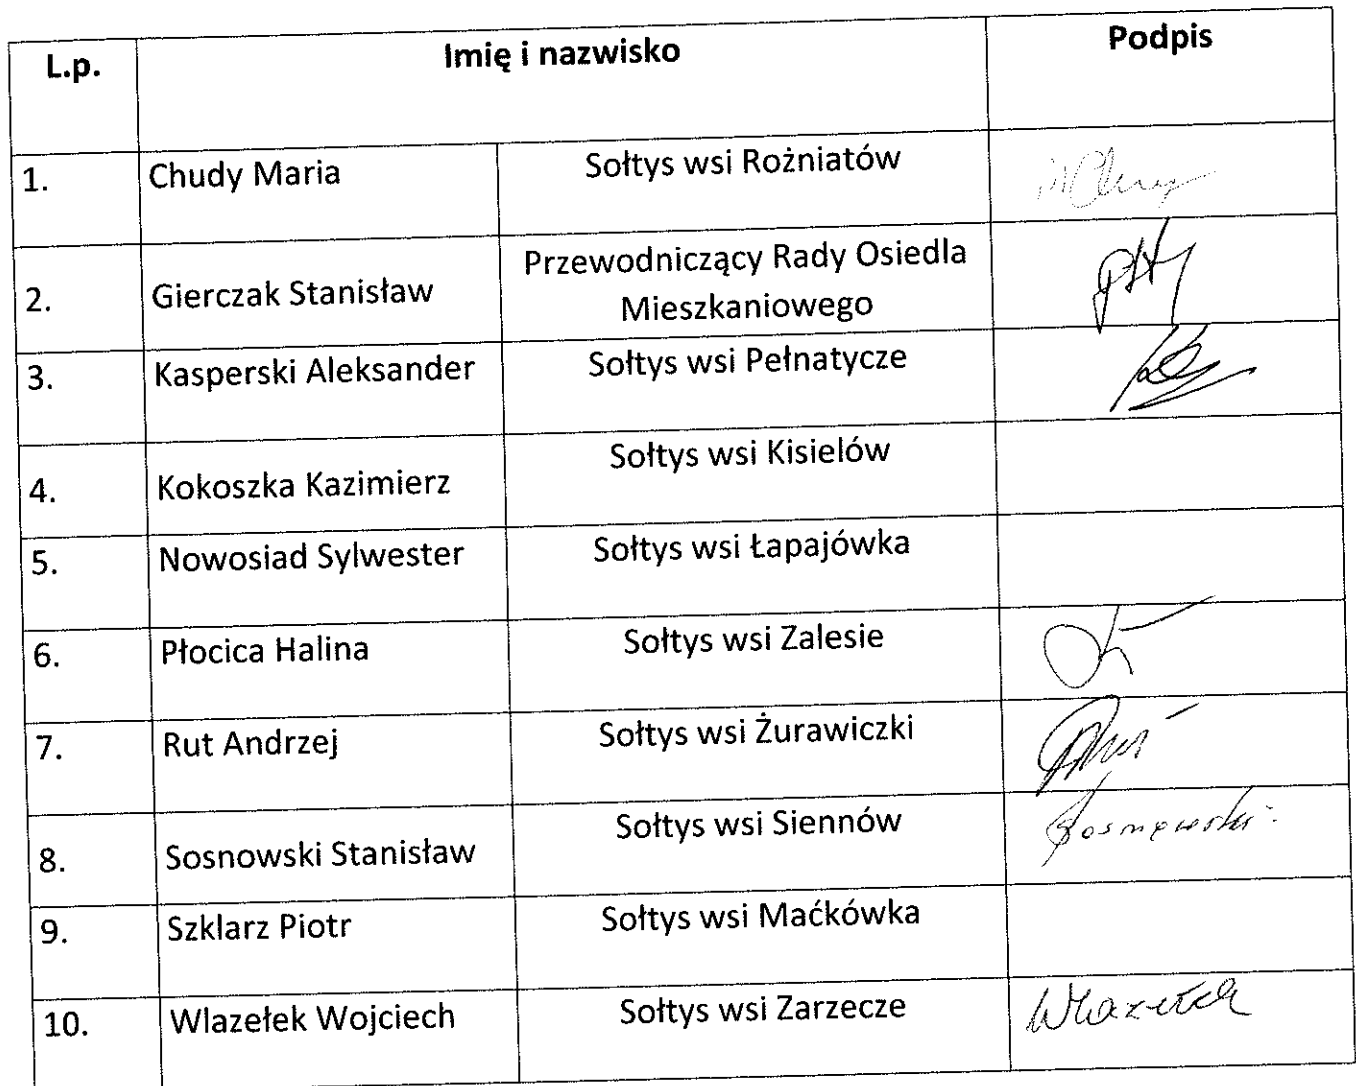 L.p. Imię i nazwisko Podpis
1. Chudy Maria Sołtys wsi Rożniatów
2. Gierczak Stanisław Przewodniczący Rady Osiedla
Mieszkaniowego
3. Kasperski Aleksander Sołtys wsi Pełnatycze
4. Kokoszka Kazimierz Sołtys wsi Kisielów
5. Nowosiad Sylwester Sołtys wsi Łapajówka
6. Płocica Halina Sołtys wsi Zalesie
7. Rut Andrzej Sołtys wsi Żurawiczki
8. Sosnowski Stanisław Sołtys wsi Siennów Sosnowski
9. Szklarz Piotr Sołtys wsi Maćkówka
10. Wlazełek Wojciech Sołtys wsi Zarzecze Wlazełek